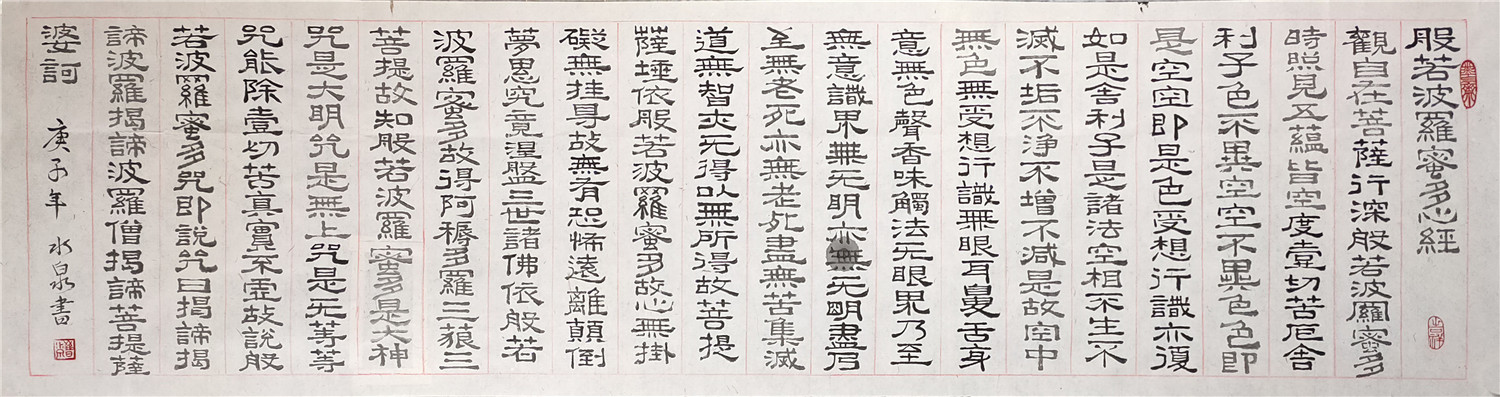 般若波羅蜜多心經
觀自在菩薩行深般若波羅蜜多
時照見五蘊皆空度壹切苦厄舍
利子色不異空空不異色色即
是空空即是色受想行識亦復
如是舍利子是諸法空相不生不
滅不垢不淨不增不減是故空中
無色無受想行識無眼耳鼻舌身
意無色聲香味觸法无眼界乃至
無意識界無无明亦無无明盡乃
至無老死亦無老死盡無苦集滅
道無智亦无得以無所得故菩提
薩埵依般若波羅蜜多故心無掛
礙無挂导故無有恐怖遠離顛倒
夢思究竟涅盤三世諸佛依般若
波羅蜜多故得阿耨多羅三藐三
菩提故知般若波羅蜜多是大神
咒是大明咒是無上咒是无等等
咒能除壹切苦真實不虛故說般
若波羅蜜多咒即說咒曰揭諦揭
諦波羅揭諦波羅僧揭諦菩提薩
婆訶 庚子年 水泉書